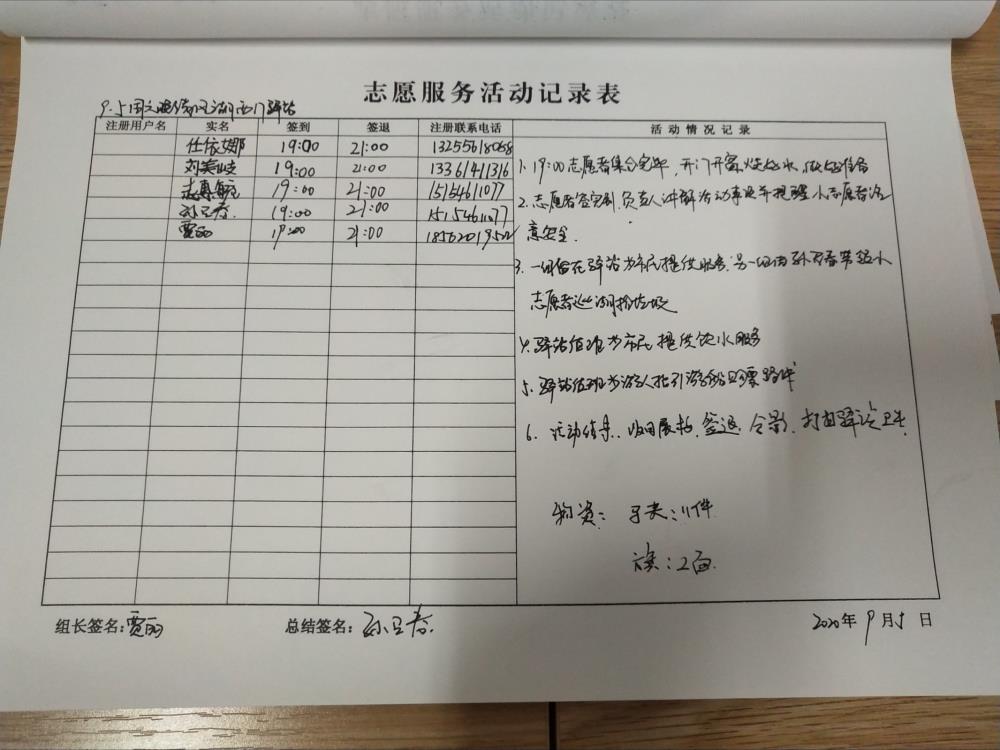 志愿服务活动记录表
9.5周六晚 湖西门驿站
注册用户名 实名 签到 签退 注册联系电话 活动情况记录
任依娜 19:00 21:00 13255618068
刘美岐 19:00 21:00 13361411316
志博 19:00 21:00 15154611077
孙卫春 19:00 21:00 15154611077
贾丽 19:00 21:00 1856201952
1. 19:00志愿者集合完毕,开门开窗,烧好水,做好准备
2. 志愿者签完到,负责人讲解活动事项并提醒小志愿者注
意安全.
3. 一组留在驿站为市民提供服务,另一组由孙卫春带领小
志愿者巡湖捡垃圾
4. 驿站值班为市民提供饮水服务
5. 驿站值班为游人指引游船购票路线
6. 活动结束,收回展板,签退,合影,打扫驿站卫生.
物资: 马夹:11件
旗:2面.
组长签名:贾丽 总结签名:孙卫春. 2020年9月5日